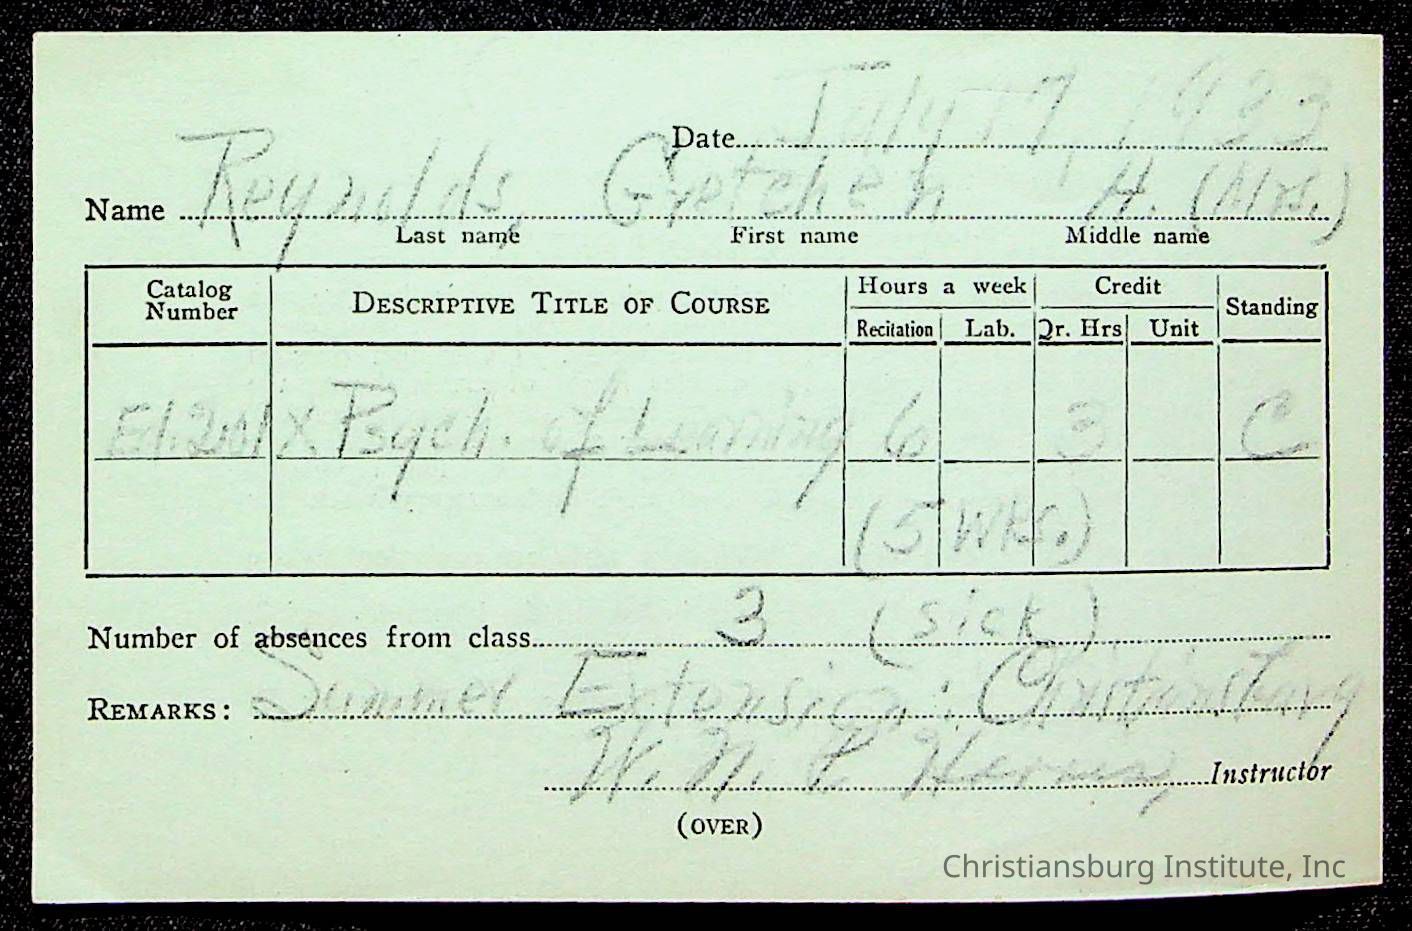 Date July 17, 1933
Name Reynolds, Gretchen H. (Mrs.)
Last name First name Middle name
Catalog Number DESCRIPTIVE TITLE OF COURSE Hours a week Credit Standing
Recitation Lab. Qr. Hrs Unit
Ed. 201X. Psych. of Learning 6 3 C
(5 Wks.)
Number of absences from class 3 (sick)
REMARKS: Summer Extension: Christiansburg
W. N. P. Instructor
(OVER)
Christiansburg Institute, Inc